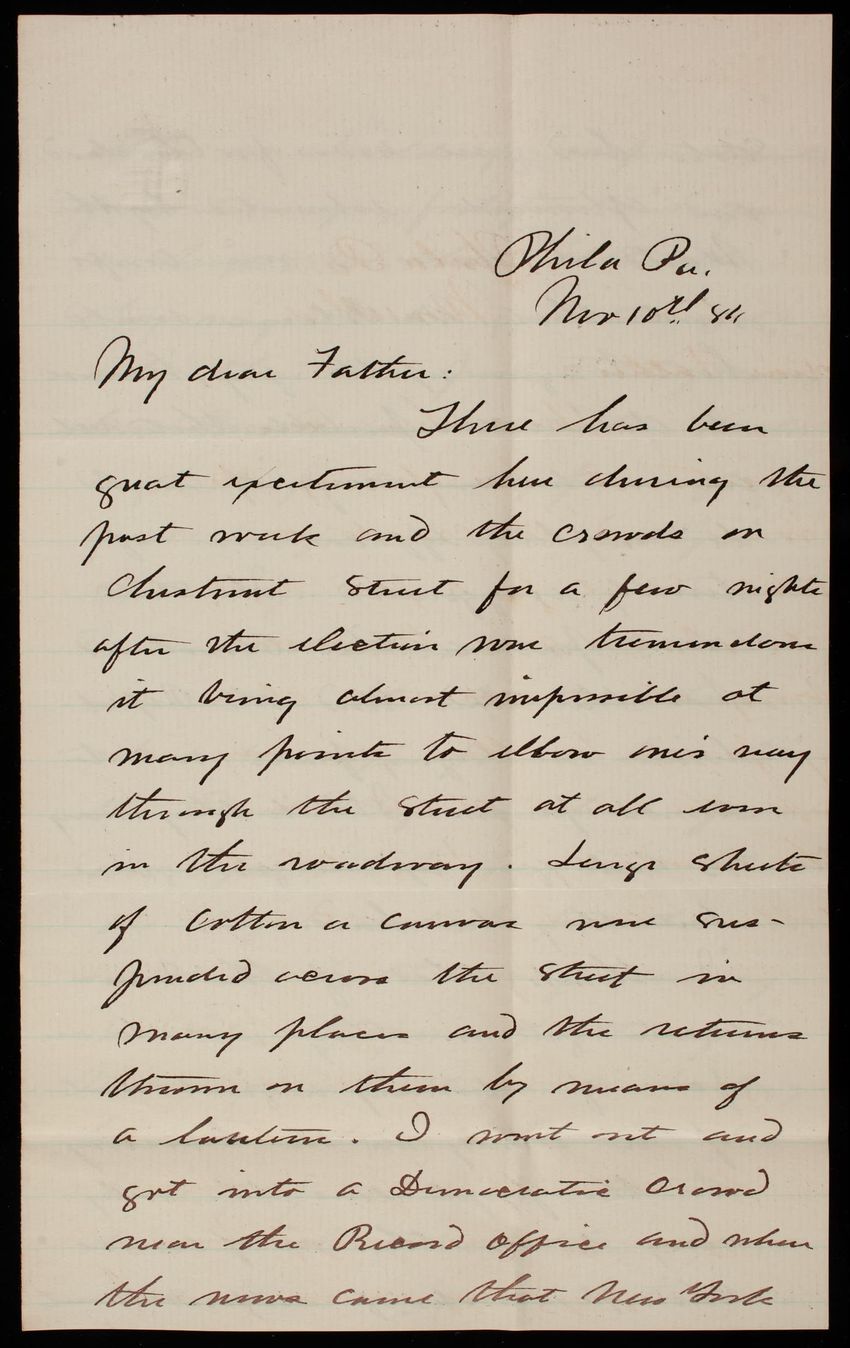 Phila Pa.
Nov 10th 84
My dear Father:
There has been
great excitement here during the
past week and the crowds on
Chestnut Street for a few nights
after the election were tremendous
it being almost impossible at
many points to elbow one's way
through the Street at all even
in the roadway. Large Sheets
of Cotton or canvas were sus-
pended across the Street in
many places and the returns
thrown on them by means of
a lantern. I went out and
got into a Democratic Crowd
near the Record Office and when
the news came that New York